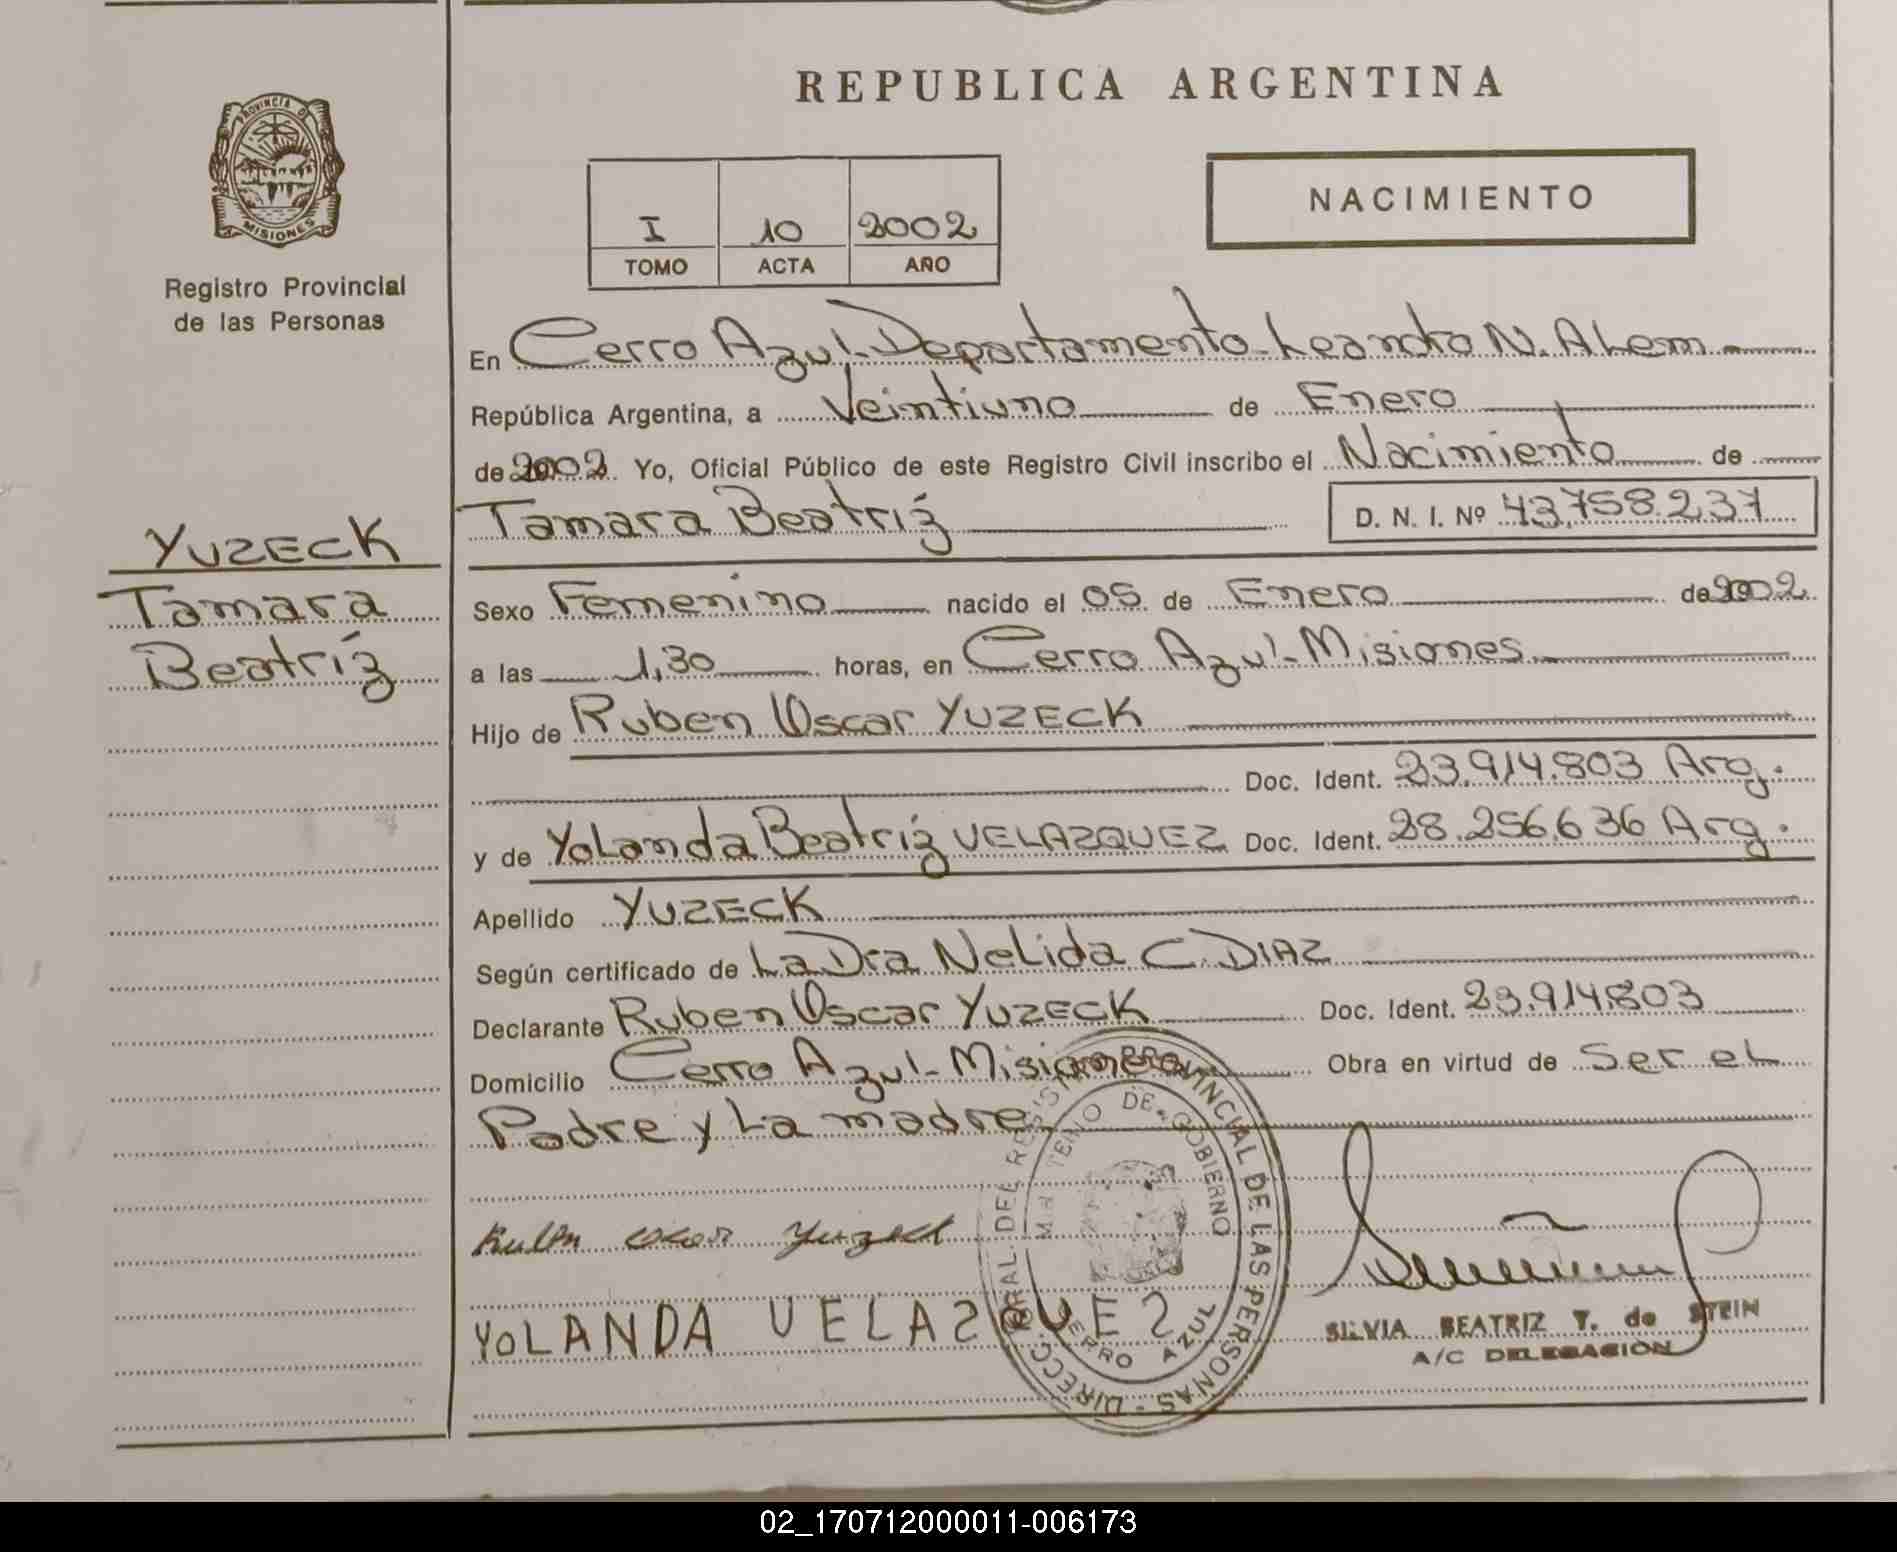 REPUBLICA ARGENTINA
PROVINCIA DE
MISIONES
Registro Provincial
de las Personas
I 10 2002
TOMO ACTA AÑO
NACIMIENTO
En Cerro Azul-Departamento-Leandro N. ALem
República Argentina, a Veintiuno de Enero
de 2002. Yo, Oficial Público de este Registro Civil inscribo el Nacimiento de
Tamara Beatríz D. N. I. Nº 43,758.237
YUZECK
Tamara
Beatríz
Sexo Femenino nacido el 05 de Enero de 2002
a las 1,30 horas, en Cerro Azul-Misiones
Hijo de Ruben Oscar YUZECK
Doc. Ident. 23.914.803 Arg.
y de YoLanda Beatríz VELAZQUEZ Doc. Ident. 28.256.636 Arg.
Apellido YUZECK
Según certificado de La Dra NeLida C. DIAZ
Declarante Ruben Oscar YUZECK Doc. Ident. 23.914.803
Domicilio Cerro Azul-Misiones Obra en virtud de Ser eL
Padre y La madre
Ruben oscar Yuzeck
YoLANDA VELAZQUEZ
DIRECC. GRAL. DEL REGIST. PROVINCIAL DE LAS PERSONAS -
MINISTERIO DE GOBIERNO
CERRO AZUL
SILVIA BEATRIZ T. de STEIN
A/C DELEGACION
02_170712000011-006173